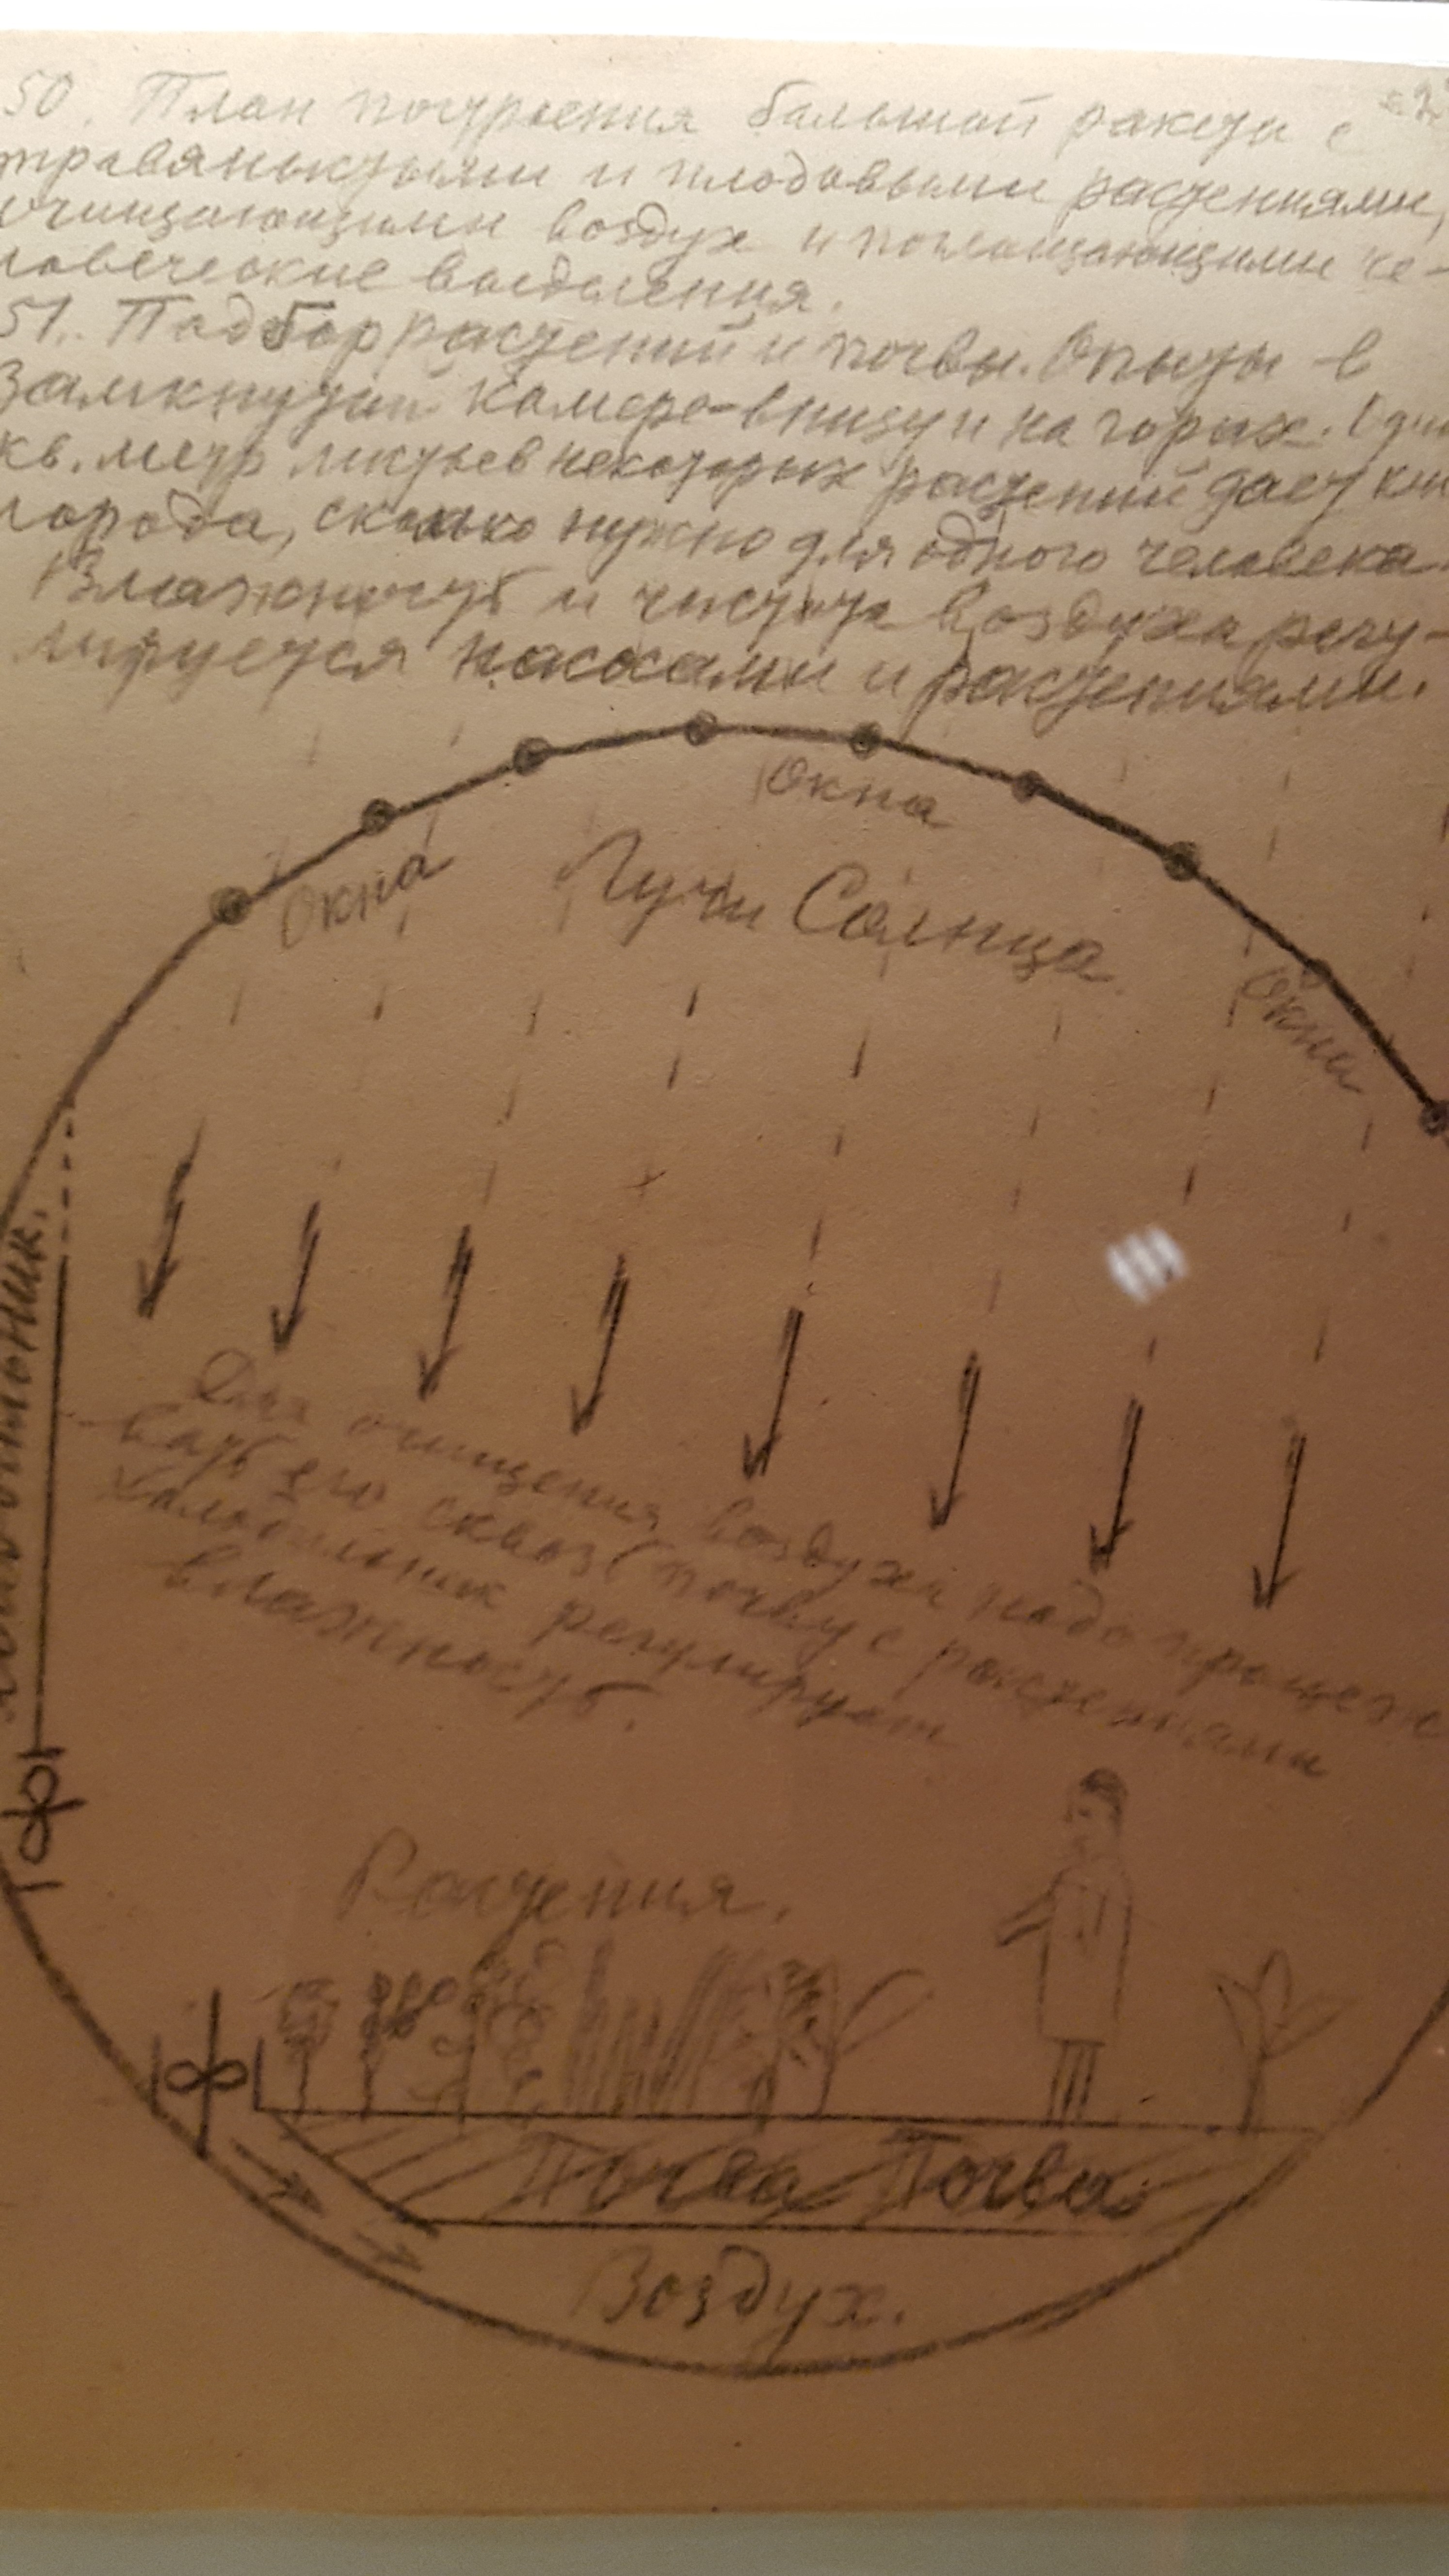 50. План построения большой ракеты с
травянистыми и плодовыми растениями,
очищающими воздух и поглощающими че-
ловеческие выделения.
51. Подбор растений и почвы. Опыты в
замкнутой камере-внизу и на горах. Один
кв. метр листьев некоторых растений дает кис
лорода, сколько нужно для одного человека.
Влажность и чистота воздуха регу-
лируется насосами и растениями.
Окна
Окна
Лучи Солнца
Окна
Холодильник.
Для очищения воздуха надо процеж
вать его сквозь почву с растениями
Холодильник регулирует
влажность.
Растения.
Почва Почва
Воздух.